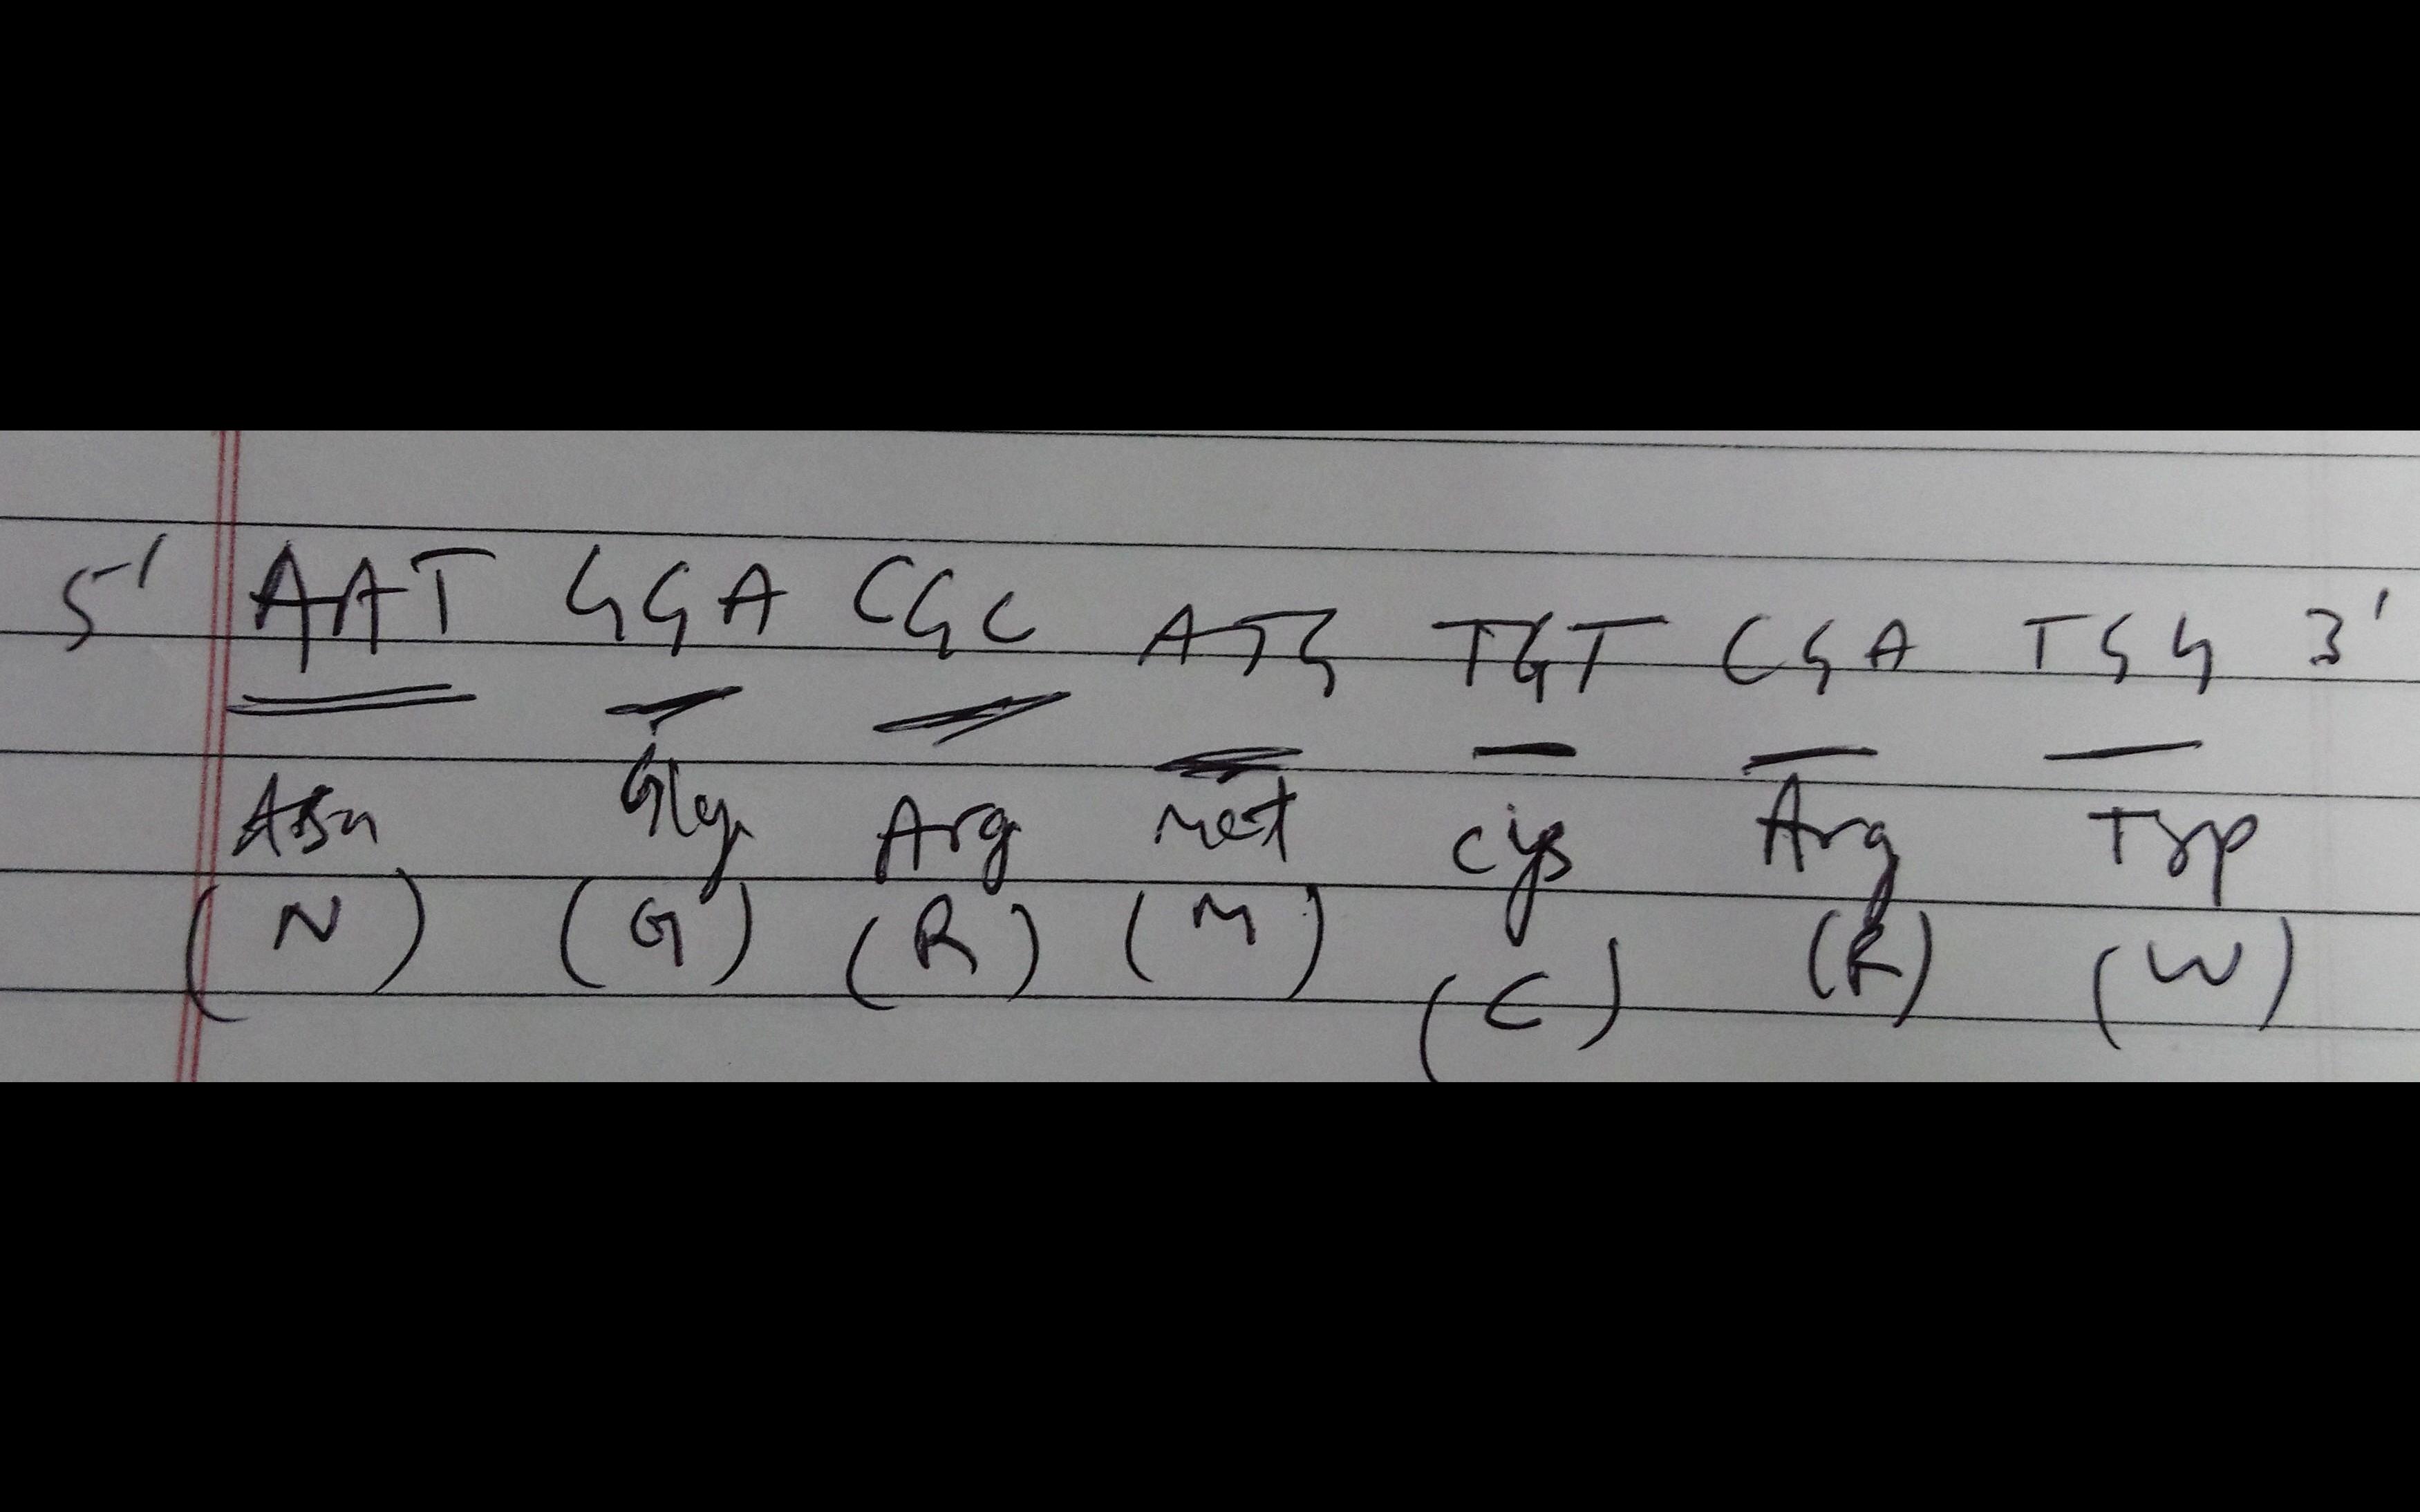 5' AAT GGA CGC ATG TGT CGA TGG 3'
Asn Gly Arg Met Cys Arg Trp
(N) (G) (R) (M) (C) (R) (W)